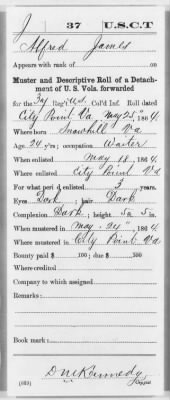 J 37 U.S.C.T
Alfred James
Appears with rank of on
Muster and Descriptive Roll of a Detach-
ment of U. S. Vols. forwarded
for the 37 Reg't U.S. Col'd Inf. Roll dated
City Point Va May 25", 1864.
Where born Snowhill Va
Age 24 y'rs; occupation Waiter
When enlisted May 18, 1864.
Where enlisted City Point Va
For what period enlisted 3 years.
Eyes Dark; hair Dark
Complexion Dark; height 5 ft. 5 in.
When mustered in May 24", 1864
Where mustered in City Point Va
Bounty paid $ 100; due $ 100
Where credited
Company to which assigned
Remarks:
Book mark:
(639) D M Kennedy
Copyist.